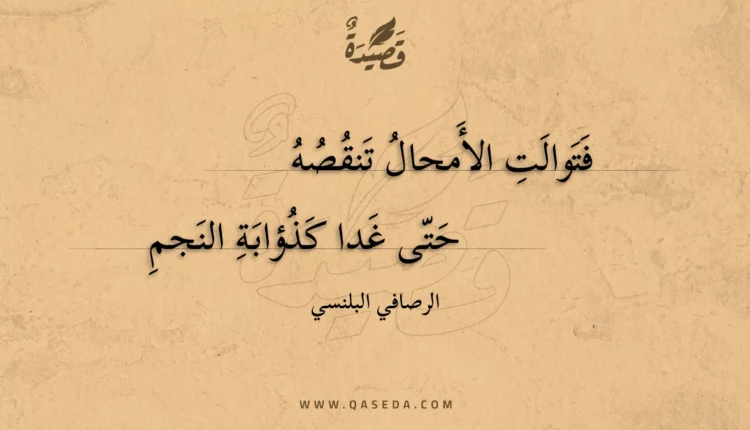 قَصِيدَةٌ
فَتَوالَتِ الأَمحالُ تَنقُصُهُ
حَتّى غَدا كَذُؤابَةِ النَجمِ
الرصافي البلنسي
WWW.QASEDA.COM